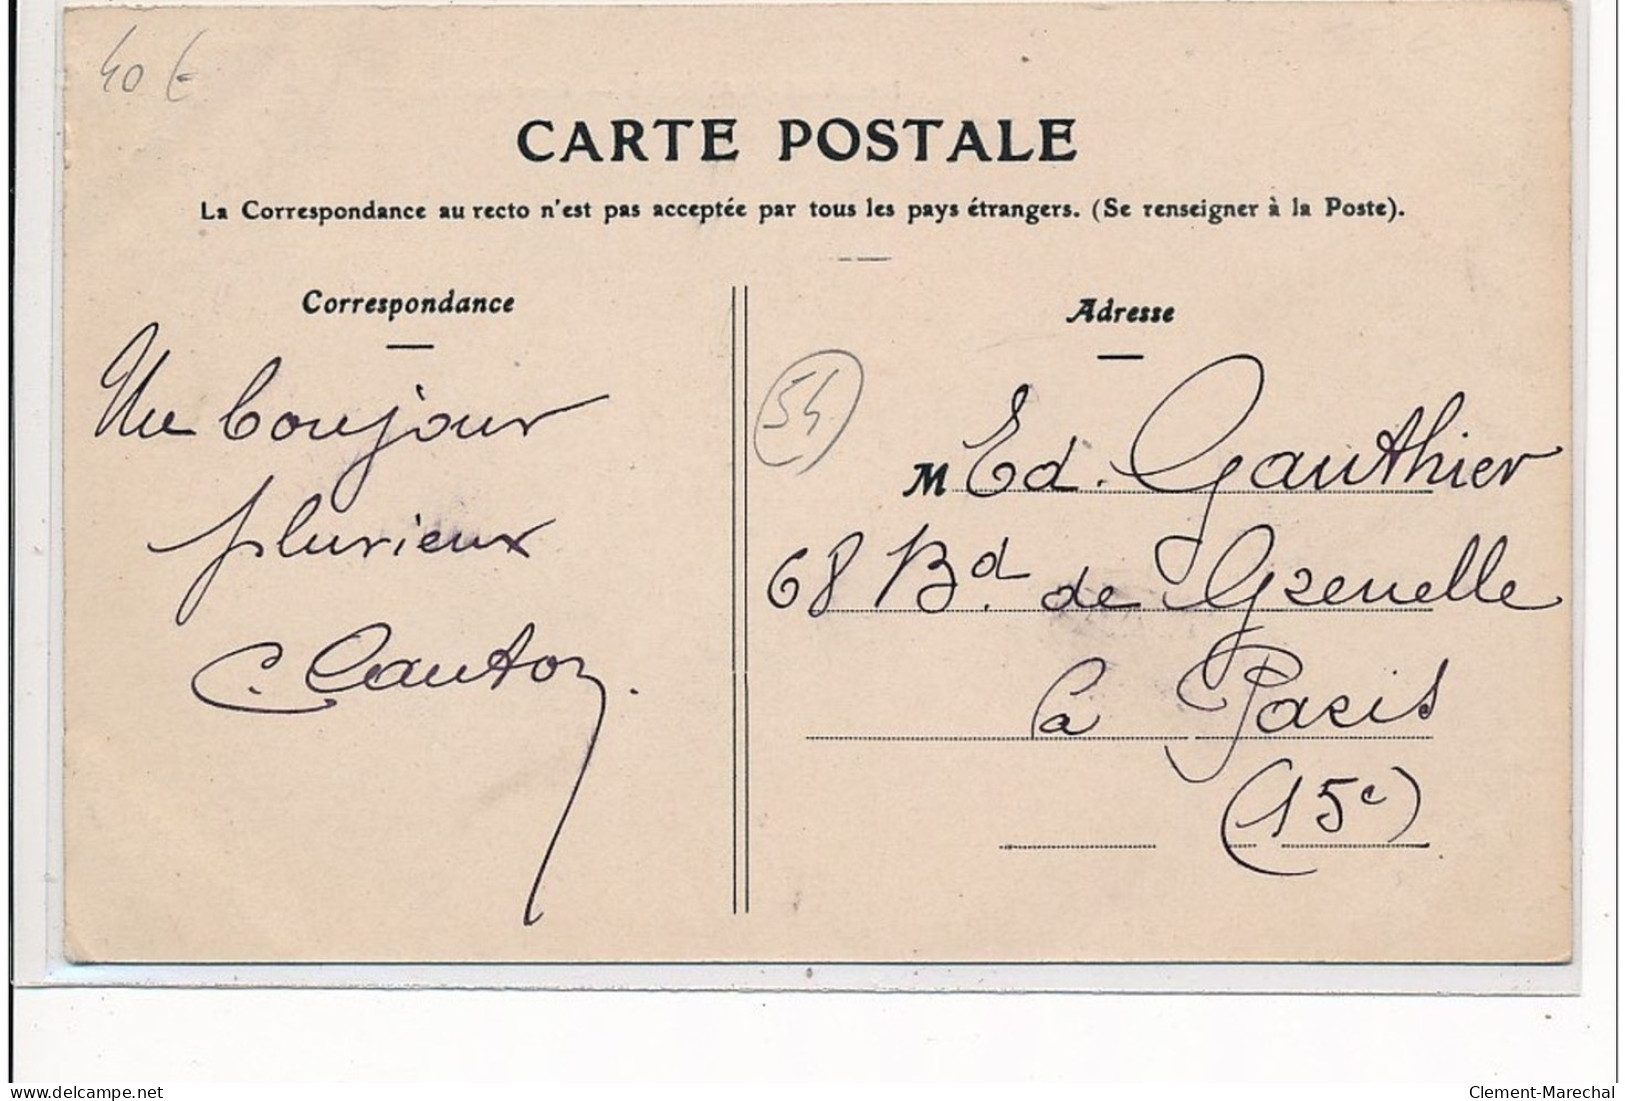 40 €
CARTE POSTALE
La Correspondance au recto n'est pas acceptée par tous les pays étrangers. (Se renseigner à la Poste).
Correspondance
Un bonjour
pluvieux
C. Cauton.
Adresse
54
M Ed. Gauthier
68 Bd. de Grenelle
à Paris
(15e)
www.delcampe.net
Clement-Marechal